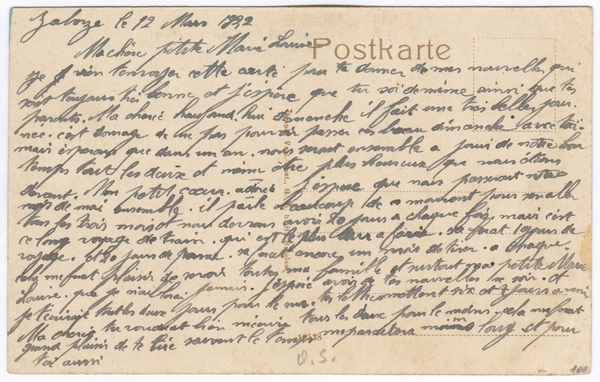 Zaborze le 12 Mars 1922
Ma chère petite Marie Louise
Postkarte
je t'envoyer cette carte pour te donner de mes nouvelles qui
sont toujours très bonne et j'espère que tu soi de même ainsi que tes
parents. Ma cherie aujourd'hui dimanche il fait une très belle jour-
née. c'est domage de ne pas pouvoir passer ce beau dimanche avec toi
mais esperons que dans un an nous seront ensemble a jouir de notre bon
temps tout les deux et même être plus heureux que nous étions
avant. Mon petit cœur adoré j'espère que nous passeront notre
mois de mai ensemble. il parle beaucoup de ce moment pour aller
tous les trois mois et nous devrons avoir 20 jours a chaque fois, mais c'est
ce long voyage de train qui est le plus dur a faire. sa fait jours de
voyage et 20 jours de perme sa fait encore un mois de tirer a chaque
cela me fait plaisir de revoir toutes ma famille et surtout ma petite Marie
Louise que je n'oublirai jamais. j'espère avoir de tes nouvelles ce soir et
je t'écrirai tout les deux jours pour le mes tes lettres mettent six et 7 jours a venir
Ma cherie tu voudrait bien m'écrire tous les deux jours pour le moins cela me ferait
grand plaisir de te lire souvent le temps me paraitera moins long et pour
toi aussi
V.S.
100